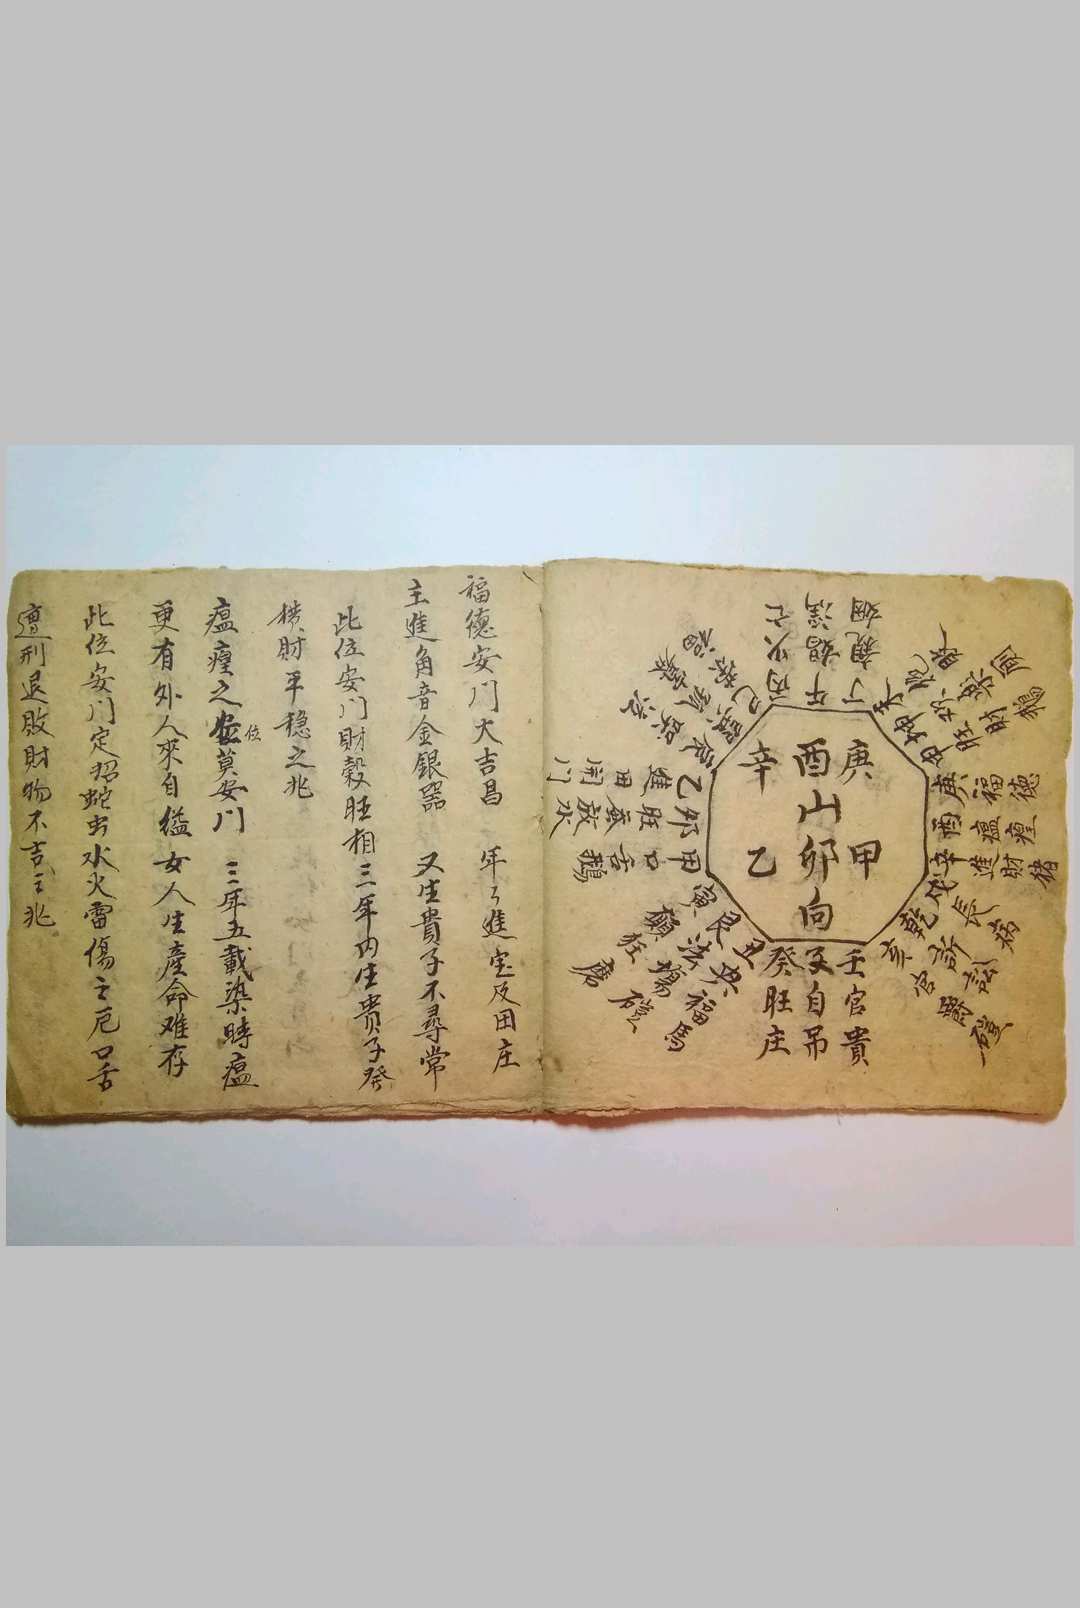 庚酉辛
山
甲卯乙
向
壬官貴
子自吊
癸旺庄
丑典福馬
艮法場
寅癲狂
甲口舌鵝
卯旺蚕放水
乙進田開门
丙
午
丁親姻
庚福德
酉瘟㾮
辛進財猪
戌長病
乾訴訟
福德安门大吉昌 年々進宝及田庄
主進角音金銀器 又生貴子不尋常
此位安门財穀旺相三年内生貴子発
横財平穏之兆
瘟㾮之位莫安门 三年五載染時瘟
更有外人來自縊 女人生産命难存
此位安门定招蛇虫水火雷傷之厄口舌
遭刑退敗財物不吉之兆